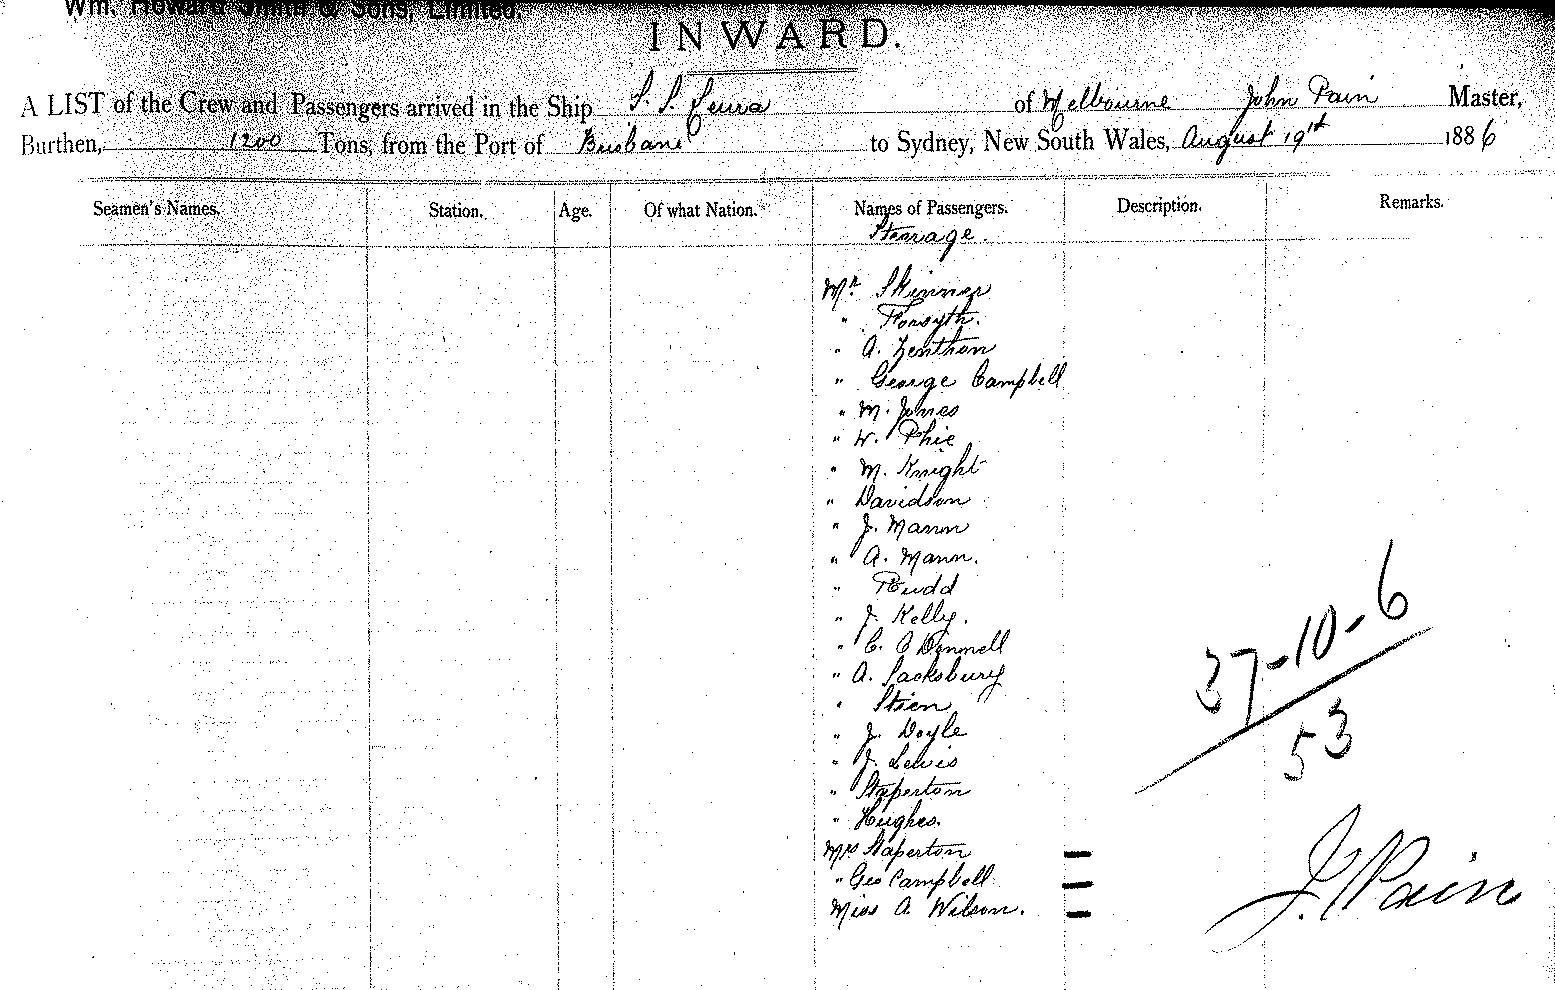 Wm. Howard Smith & Sons, Limited.
INWARD.
A LIST of the Crew and Passengers arrived in the Ship S. S. Leura of Melbourne John Pain Master,
Burthen, 1200 Tons, from the Port of Brisbane to Sydney, New South Wales, August 19th 1886
Seamen's Names. Station. Age. Of what Nation. Names of Passengers. Description. Remarks.
Steerage.
Mr. Skinner
" Forsyth.
" A. Zenthon
" George Campbell
" M. Jones
" W. Phie
" M. Knight
" Davidson
" J. Mann
" A. Mann.
" Rudd
" J. Kelly.
" C. O Donnell
" A. Sacksbury
" Stien
" J. Doyle
" J. Lewis
" Staperton
" Hughes.
Mrs Staperton
" Geo Campbell
Miss A. Wilson.
37-10-6
53
J. Pain